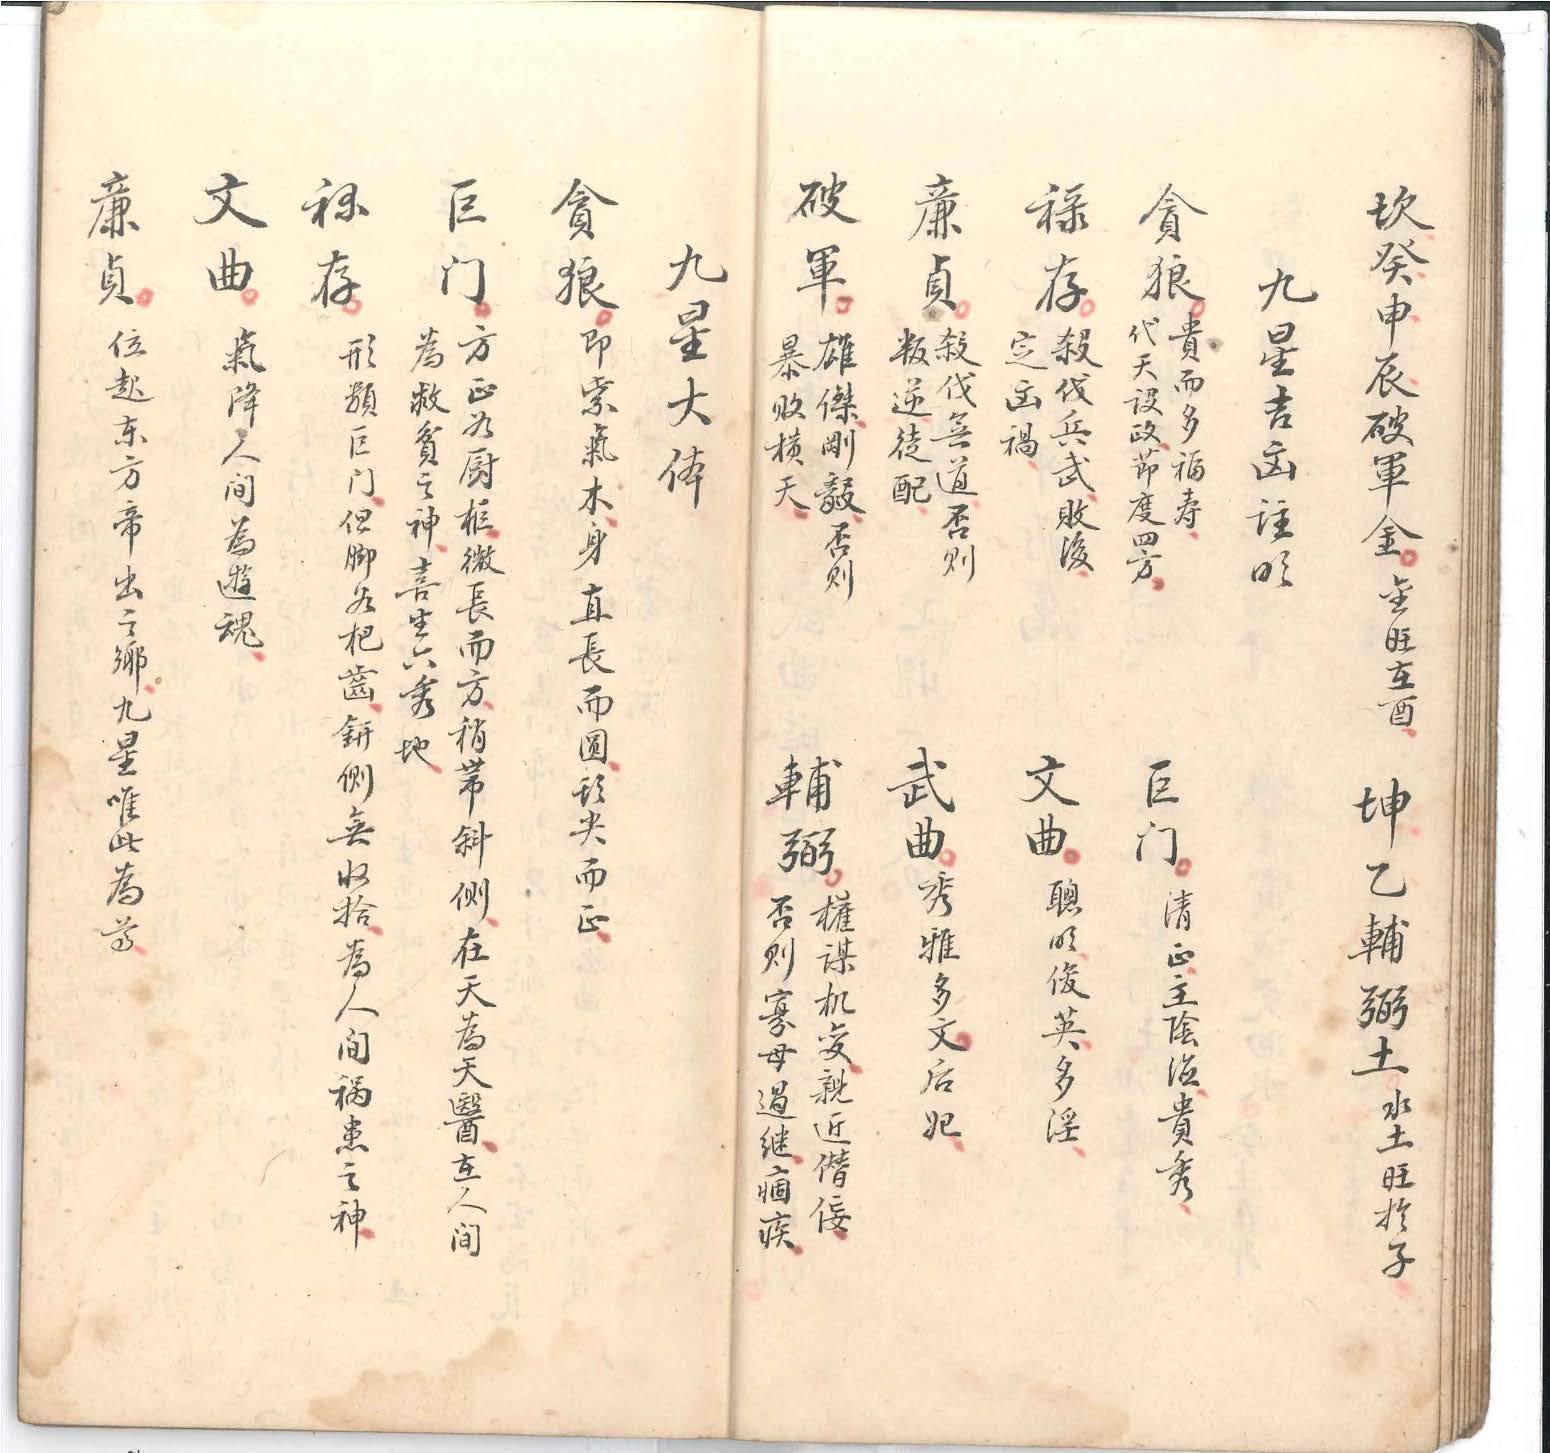 坎癸申辰破軍金 金旺在酉 坤乙輔弼土 水土旺於子
九星吉凶註明
貪狼 貴而多福寿
代天设政節度四方
巨门 清正主陰德貴秀
祿存 殺伐兵武敗後
定凶禍
文曲 聰明俊英多淫
廉貞 殺伐無道否则
叛逆徒配
武曲 秀雅多文后妃
破軍 雄傑剛毅否则
暴败横天
輔弼 權謀机变親近僭佞
否则寡母過继痼疾
九星大体
貪狼 即紫氣木身直長而圆头尖而正
巨门 方正为厨柜微長而方稍带斜侧在天為天醫在人间
為救貧之神喜生六秀地
祿存 形類巨门但脚为杷齒斜侧無收拾為人间祸患之神
文曲 氣降人间為遊魂
廉貞 位起东方帝出之鄉九星唯此為尊